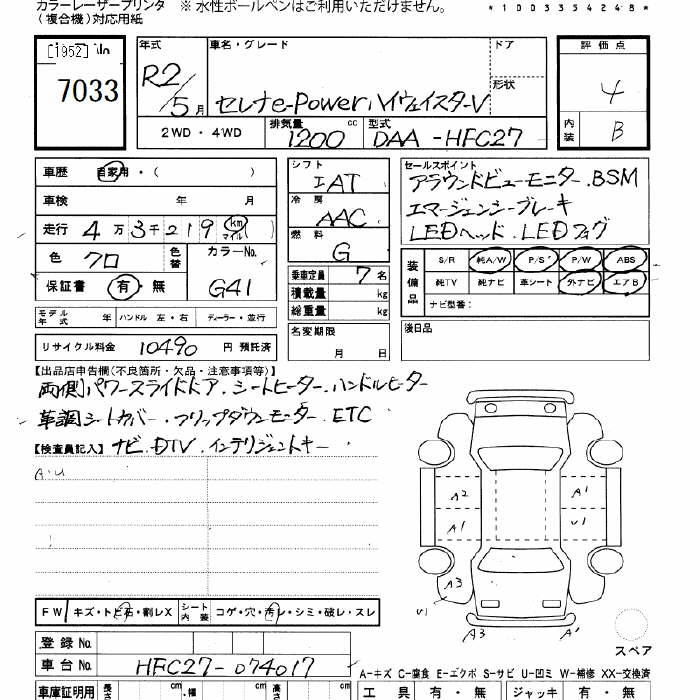 カラーレーザープリンタ ※ 水性ボールペンはご利用いただけません。
(複合機)対応用紙
*1003354248*
[1952]
7033
年式 車名・グレード ドア
R2/5月 セレナe-Power ハイウェイスターV 形状
2WD・4WD 排気量 1200 cc 型式 DAA-HFC27
評価点 4
内装 B
車歴 自家用・( )
車検 年 月
走行 4万3千219 km マイル
色 クロ 色番 カラーNo. G41
保証書 有・無
モデル年式 年 ハンドル 左・右 ディーラー・並行
リサイクル料金 10490 円 預託済
シフト IAT
冷房 AAC
燃料 G
乗車定員 7 名
積載量 kg
総重量 kg
名変期限 月 日
セールスポイント
アラウンドビューモニター.BSM
エマージェンシーブレーキ
LEDヘッド.LEDフォグ
装備品 S/R 純A/W P/S P/W ABS
純TV 純ナビ 革シート 外ナビ エアB
ナビ型番:
後日品
【出品店申告欄(不良箇所・欠品・注意事項等)】
両側パワースライドドア.シートヒーター.ハンドルヒーター
革調シートカバー.フリップダウンモニター.ETC
【検査員記入】 ナビ.DTV.インテリジェントキー
A・U
A2 A1
A1 U1
A3
U1
A3 A1
スペア
FW キズ・トビ石・割レX シート内装 コゲ・穴・汚レ・シミ・破レ・スレ
登録No.
車台No. HFC27-074017
A-キズ C-腐食 E-エクボ S-サビ U-凹ミ W-補修 XX-交換済
車庫証明用 長さ cm 幅 cm cm 工具 有・無 ジャッキ 有・無